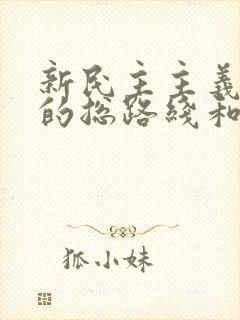 新民主主義
的总路綫和
狐小妹